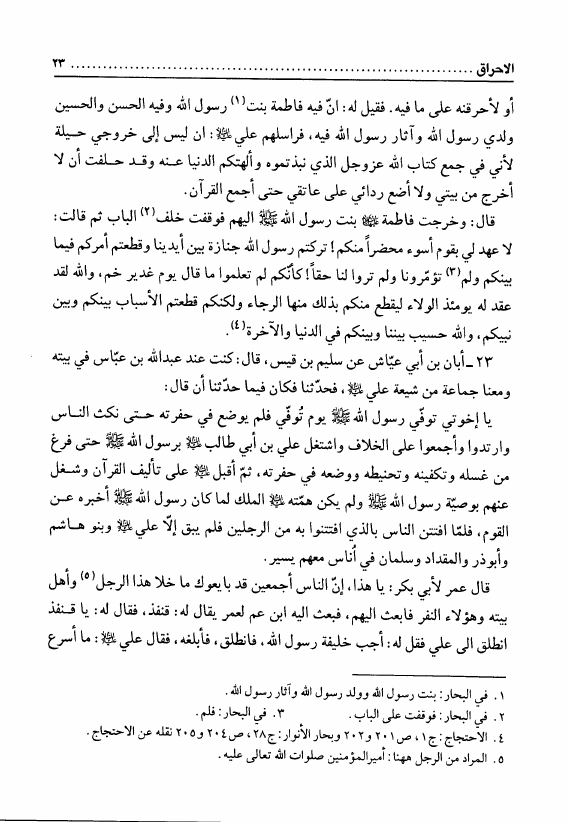 الاحراق ........................................................................ ٢٣
أو لأحرقنه على ما فيه. فقيل له: انّ فيه فاطمة بنت(١) رسول الله وفيه الحسن والحسين
ولدي رسول الله وآثار رسول الله فيه، فراسلهم علي ﷺ: ان ليس إلى خروجي حيلة
لأني في جمع كتاب الله عزوجل الذي نبذتموه وألهتكم الدنيا عنه وقد حلفت أن لا
أخرج من بيتي ولا أضع ردائي على عاتقي حتى أجمع القرآن.
قال: وخرجت فاطمة بنت رسول الله ﷺ اليهم فوقفت خلف(٢) الباب ثم قالت:
لا عهد لي بقوم أسوء محضراً منكم! تركتم رسول الله جنازة بين أيدينا وقطعتم أمركم فيما
بينكم ولم(٣) تؤمّرونا ولم تروا لنا حقاً! كأنّكم لم تعلموا ما قال يوم غدير خم، والله لقد
عقد له يومئذ الولاء ليقطع منكم بذلك منها الرجاء ولكنكم قطعتم الأسباب بينكم وبين
نبيكم، والله حسيب بيننا وبينكم في الدنيا والآخرة(٤).
٢٣ ـ أبان بن أبي عيّاش عن سليم بن قيس، قال: كنت عند عبدالله بن عبّاس في بيته
ومعنا جماعة من شيعة علي، فحدّثنا فكان فيما حدّثنا أن قال:
يا إخوتي توفّي رسول الله ﷺ يوم تُوفّي فلم يوضع في حفرته حتى نكث الناس
وارتدوا وأجمعوا على الخلاف واشتغل علي بن أبي طالب برسول الله ﷺ حتى فرغ
من غسله وتكفينه وتحنيطه ووضعه في حفرته، ثمّ أقبل على تأليف القرآن وشغل
عنهم بوصيّة رسول الله ﷺ ولم يكن همّته الملك لما كان رسول الله ﷺ أخبره عن
القوم، فلمّا افتتن الناس بالذي افتتنوا به من الرجلين فلم يبق إلّا علي وبنو هاشم
وأبوذر والمقداد وسلمان في اُناس معهم يسير.
قال عمر لأبي بكر: يا هذا، إنّ الناس أجمعين قد بايعوك ما خلا هذا الرجل(٥) وأهل
بيته وهؤلاء النفر فابعث اليهم، فبعث اليه ابن عم لعمر يقال له: قنفذ، فقال له: يا قنفذ
انطلق الى علي فقل له: أجب خليفة رسول الله، فانطلق، فأبلغه، فقال علي: ما أسرع
١. في البحار: بنت رسول الله وولد رسول الله وآثار رسول الله.
٢. في البحار: فوقفت على الباب. ٣. في البحار: فلم.
٤. الاحتجاج: ج١، ص٢٠١ و٢٠٢ وبحار الأنوار: ج٢٨، ص٢٠٤ و٢٠٥ نقله عن الاحتجاج.
٥. المراد من الرجل ههنا: أميرالمؤمنين صلوات الله تعالى عليه.